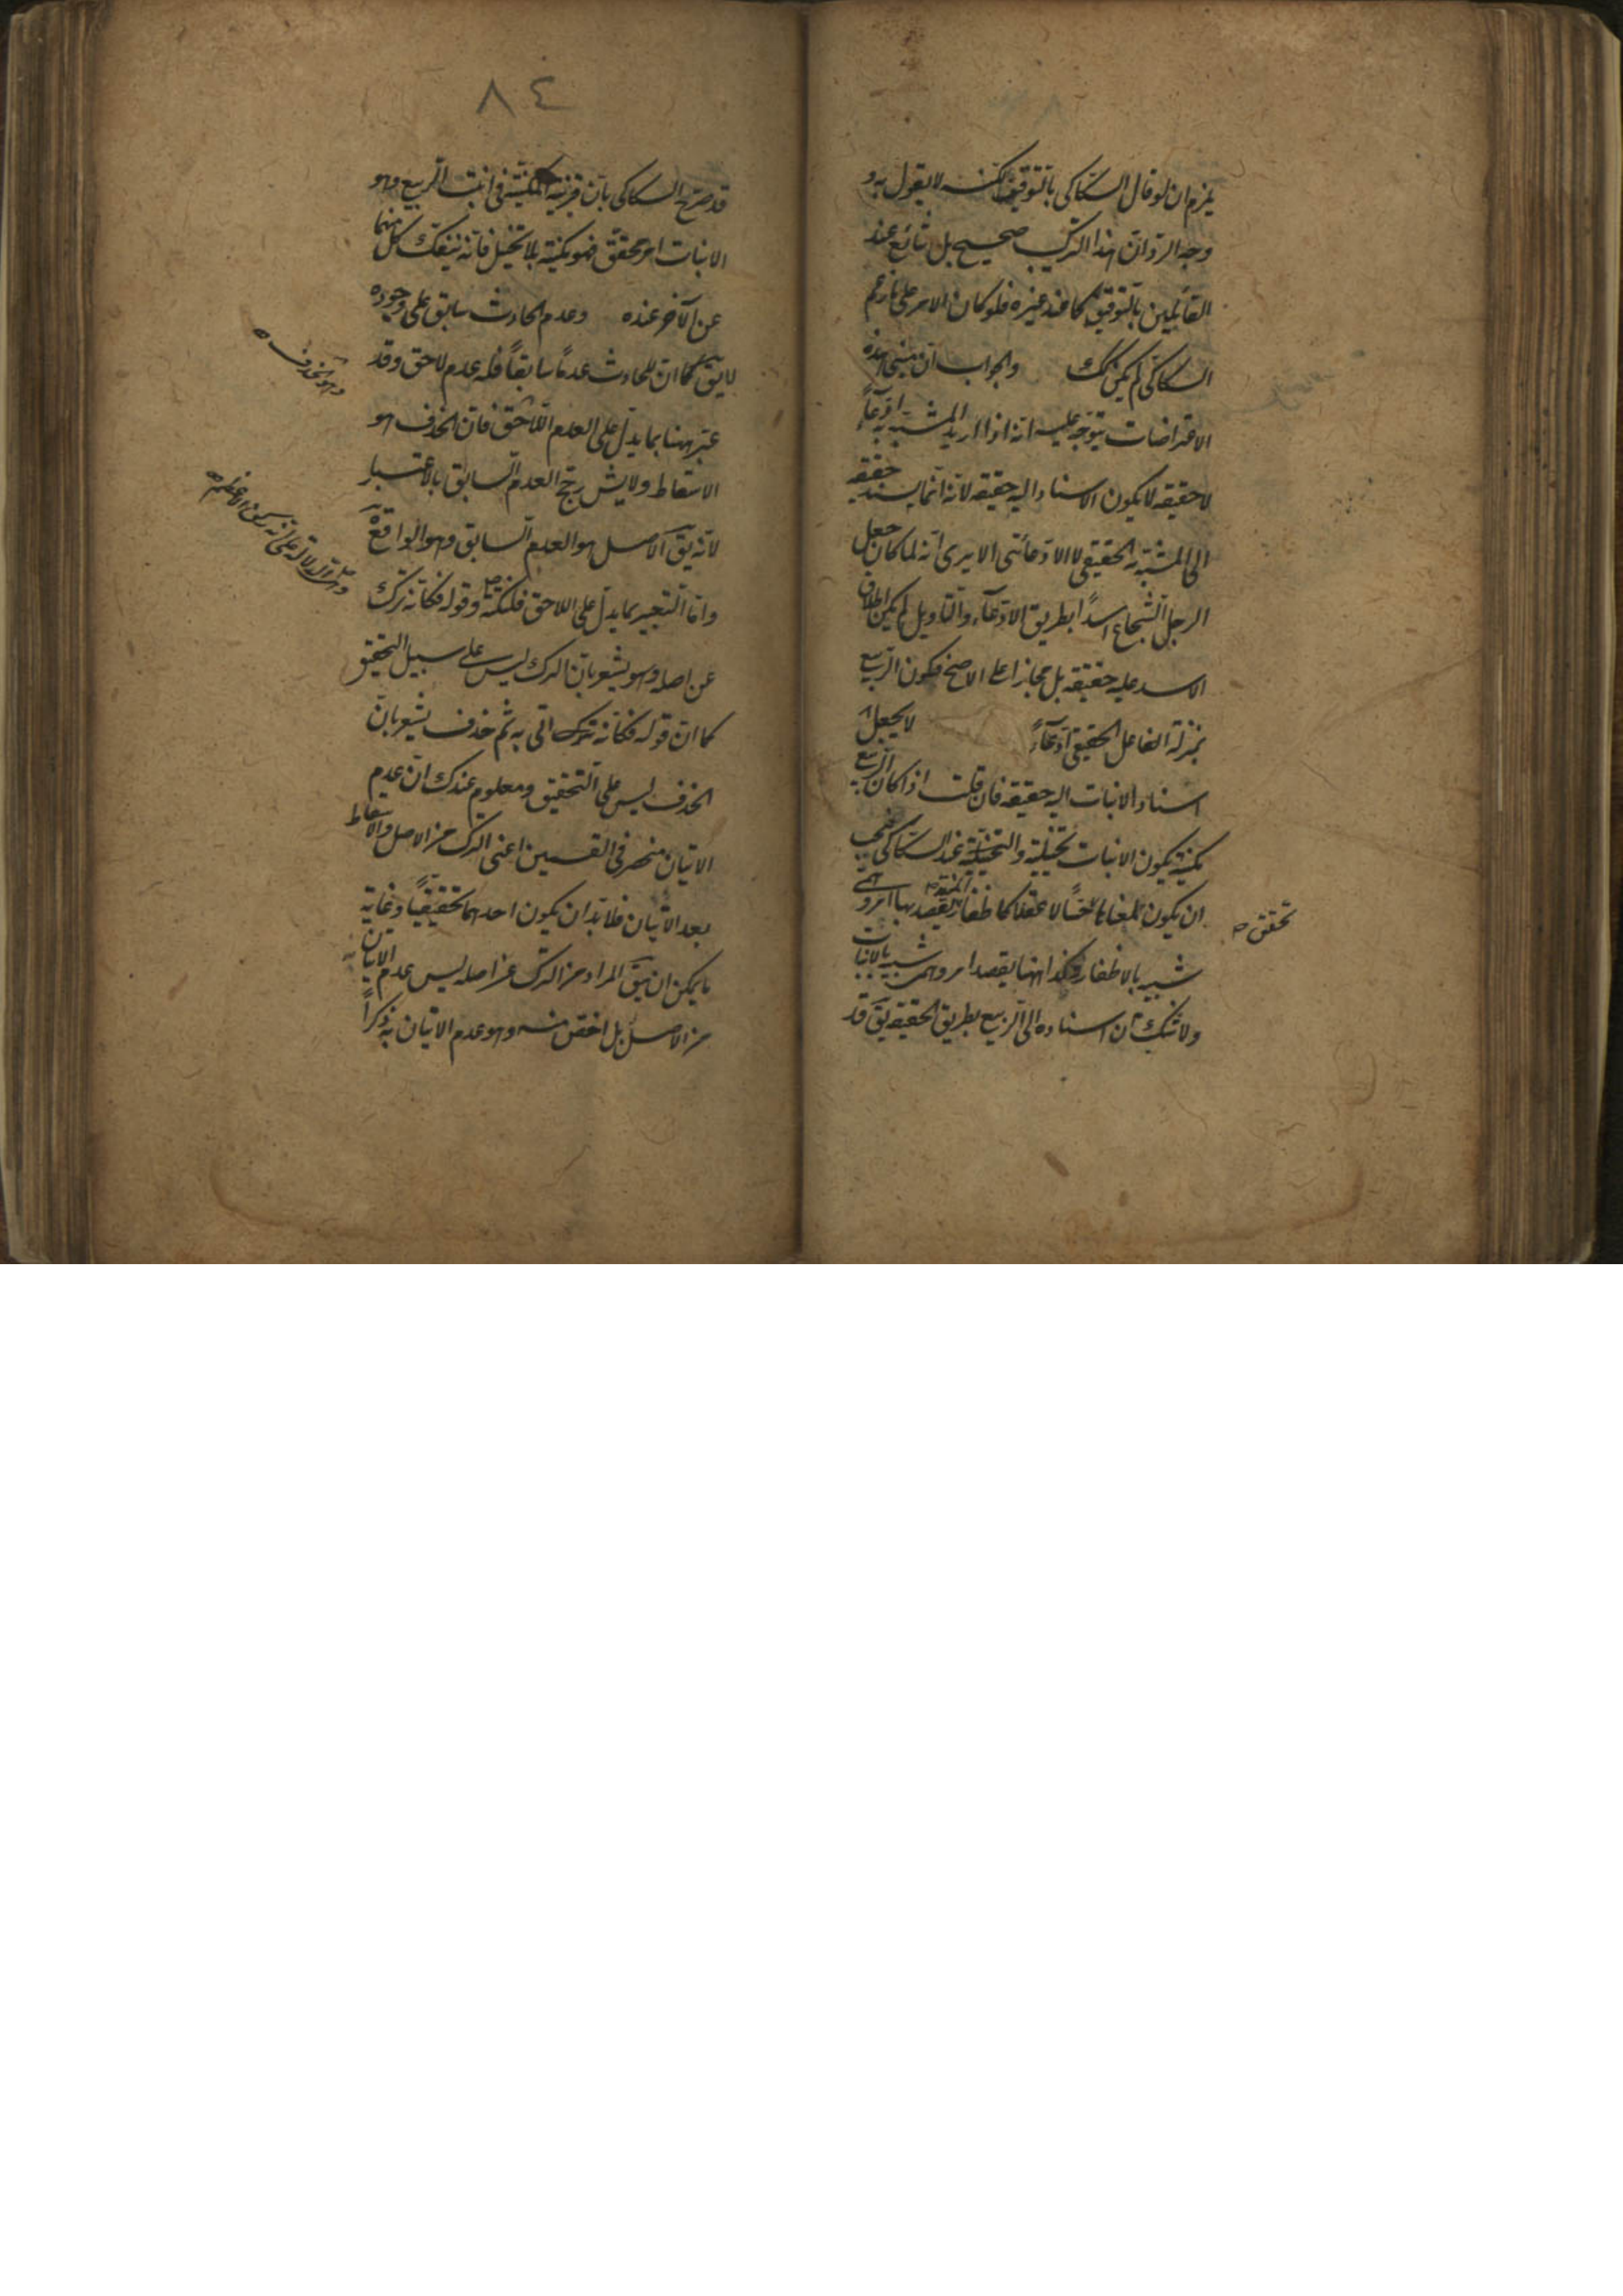 يلزم ان لو قال السكاكى بالتوقيف لكنه لا يقول به و
وجه الرد ان هذا التركيب صحيح بل شائع عند
القائلين بالتوقيف كما عند غيره فلو كان الامر على ما زعم
السكاكى لم يكن كك والجواب ان مبنى هذه
الاعتراضات يتوجه عليه انه اذا اريد المشبه به ادعاءً
لا حقيقه لا يكون الاسناد اليه حقيقه لانه انما يسند حقيقه
الى المشبه به الحقيقى لا الادعائى الا يرى انه لما كان جعل
الرجل الشجاع اسدًا بطريق الادعاء والتاويل لم يكن اطلاق
الاسد عليه حقيقه بل مجازا على الاصح فكون الربيع
بمنزلة الفاعل الحقيقى ادعاءً لا يجعل
اسناد الانبات اليه حقيقه فان قلت اذا كان الربيع
مكنية يكون الانبات تخييلية والتخييلية عند السكاكى يجب
ان يكون لمعناها حسًا لا عقلا كاظفار المنية يقصد بها امر وهمى
تحقق صح
شبيه بالاظفار وكذا ههنا يقصد امر وهمى شبيه بالانبات
ولا شك ان اسناده الى الربيع بطريق الحقيقه يق قد
٨٤
قد صرح السكاكى بان قرينة المكنية فى انبت الربيع وهو
الانبات امر محقق فهو مكنية بلا تخييل فانه ينفك كل منهما
عن الآخر عنده وعدم الحادث سابق على وجوده
لا يق كما ان للحادث عدمًا سابقًا فله عدم لاحق وقد
وهو الحذف صح
عبر ههنا بما يدل على العدم اللاحق فان الحذف هو
الاسقاط ولا رجح العدم السابق بالاعتبار
لانه يق الاصل هو العدم السابق وهو الواقع
واما التعبير بما يدل على اللاحق فلنكتة وقوله فكانه ترك
عن اصله وهو يشعر بان الترك ليس على سبيل التحقيق
كما ان قوله فكانه ترك اتى به ثم حذف يشعر بان
الحذف ليس على التحقيق ومعلوم عندك ان عدم
الاتيان منحصر فى القسمين اعنى الترك من الاصل والاسقاط
بعد الاتيان فلا بد ان يكون احدهما تحقيقيًا وغاية
ما يمكن ان يق المراد من الترك عن اصله ليس عدم الاتيان به
من الاصل بل اخص منه وهو عدم الاتيان به ذكرًا